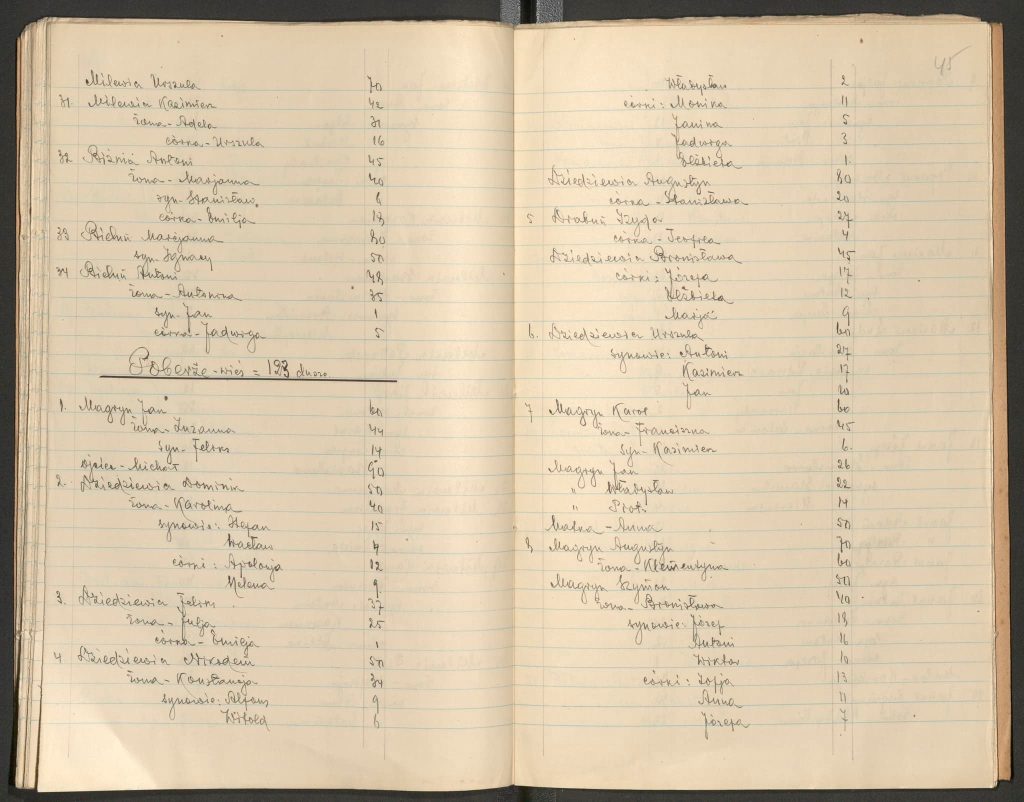 Milewia Urszula 70
31 Milewia Kazimierz 42
żona - Adela 31
córka - Urszula 16
32 Antoni 45
żona - Marjanna 40
syn - Stanisław 6
córka - Emilja 18
33 Marjanna 80
syn - Ignacy 50
34 Antoni 48
żona - Antonina 35
syn - Jan 1
córka - Jadwiga 5
Poberże - wieś = 123 dusze.
1. Magryn Jan 60
żona - Zuzanna 44
syn - Feliks 14
ojciec - Michał 90
2. Dziedziewia Dominik 50
żona - Karolina 40
synowie: Stefan 15
Wacław 4
córki: Apolonja 12
Helena 9
3. Dziedziewia Feliks 37
żona - Julja 25
córka - Emilja 1
4 Dziedziewia Nikodem 50
żona - Konstancja 34
synowie: Alfons 9
Witold 6
45
Władysław 2
córki: Monika 11
Janina 5
Jadwiga 3
Elżbieta 1
Dziedziewia Augustyn 80
córka - Stanisława 20
5 27
córka - Teofila 4
Dziedziewia Bronisława 45
córki: Józefa 17
Elżbieta 12
Marja 9
6. Dziedziewia Urszula 60
synowie: Antoni 27
Kazimierz 17
Jan 10
7 Magryn Karol 60
żona - Franciszka 45
syn - Kazimierz 6
Magryn Jan 26
" Władysław 22
" Piotr 14
Matka - Anna 50
8 Magryn Augustyn 70
żona - Klementyna 60
Magryn Szymon 50
żona - Bronisława 40
synowie: Józef 18
Antoni 16
Wiktor 10
córki: Zofja 13
Anna 11
Józefa 7